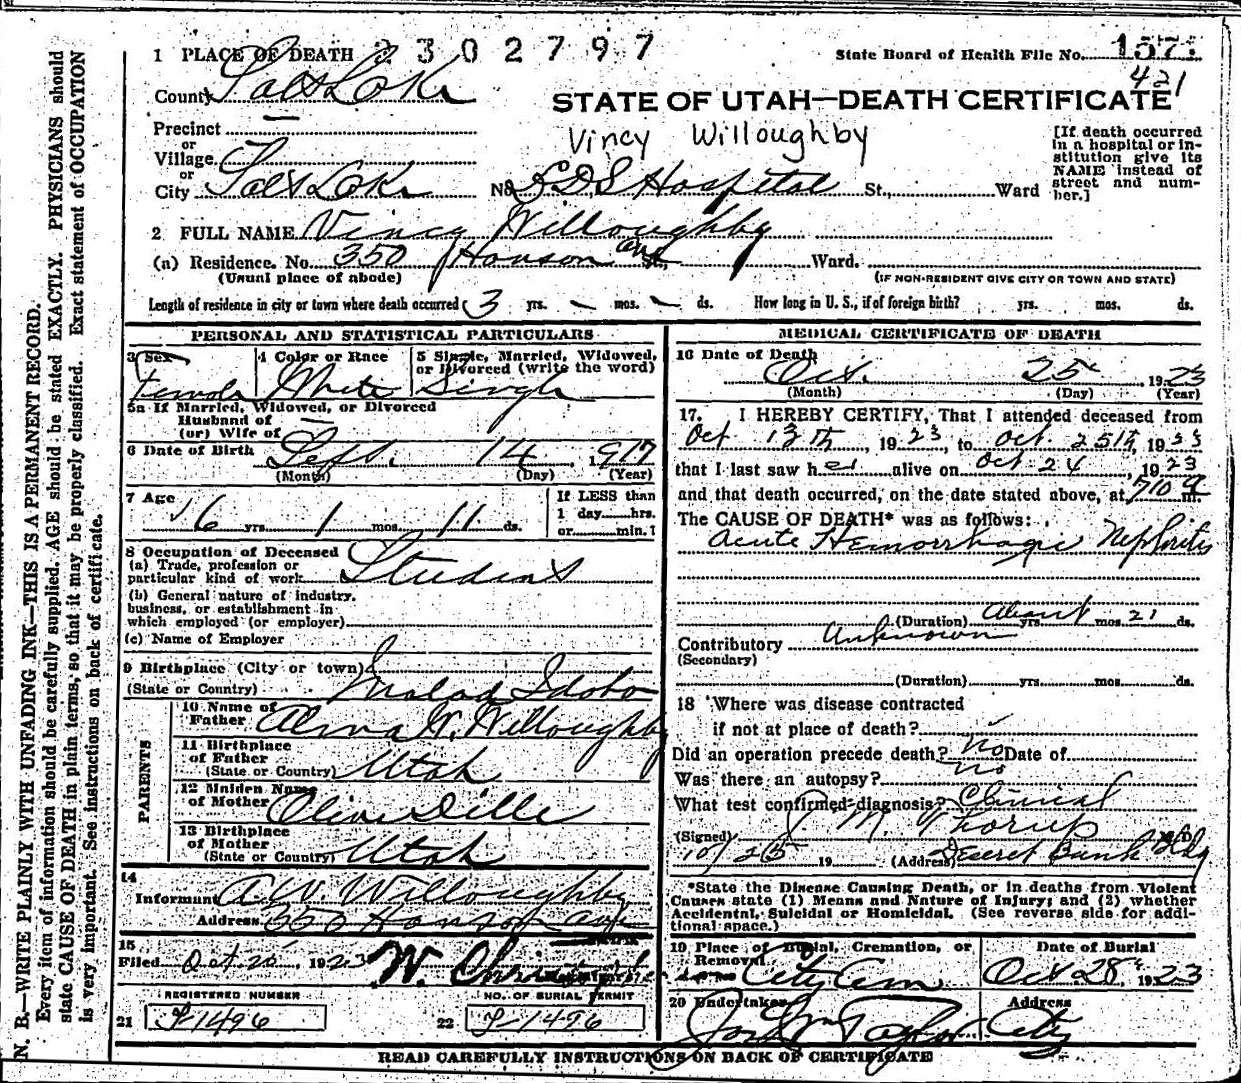 N. B.—WRITE PLAINLY WITH UNFADING INK—THIS IS A PERMANENT RECORD.
Every item of information should be carefully supplied. AGE should be stated EXACTLY. PHYSICIANS should
state CAUSE OF DEATH in plain terms, so that it may be properly classified. Exact statement of OCCUPATION
is very important. See instructions on back of certificate.
1 PLACE OF DEATH 2302797 State Board of Health File No. 157
421
County Salt Lake
STATE OF UTAH—DEATH CERTIFICATE
Vincy Willoughby
Precinct
or
Village
or
City Salt Lake No. LDS Hospital St., Ward
[If death occurred
in a hospital or in-
stitution give its
NAME instead of
street and num-
ber.]
2 FULL NAME Vincy Willoughby
(a) Residence. No. 350 Hanson ave St., Ward.
(Usual place of abode) (IF NON-RESIDENT GIVE CITY OR TOWN AND STATE)
Length of residence in city or town where death occurred 3 yrs. - mos. - ds. How long in U. S., if of foreign birth? yrs. mos. ds.
PERSONAL AND STATISTICAL PARTICULARS
3 Sex 4 Color or Race 5 Single, Married, Widowed,
or Divorced (write the word)
Female White Single
5a If Married, Widowed, or Divorced
Husband of
(or) Wife of -
6 Date of Birth Sept. 14 1917
(Month) (Day) (Year)
7 Age 6 yrs. 1 mos. 11 ds.
If LESS than
1 day hrs.
or min. ?
8 Occupation of Deceased
(a) Trade, profession or
particular kind of work Student
(b) General nature of industry,
business, or establishment in
which employed (or employer)
(c) Name of Employer
9 Birthplace (City or town)
(State or Country) Malad Idaho
PARENTS
10 Name of
Father Alma W. Willoughby
11 Birthplace
of Father
(State or Country) Utah
12 Maiden Name
of Mother Olive Dille
13 Birthplace
of Mother
(State or Country) Utah
14
Informant A. W. Willoughby
Address 350 Hanson ave
15
Filed Oct 26, 1923 W. Christopherson
REGISTERED NUMBER NO. OF BURIAL PERMIT
21 S-1496 22 S-1496
MEDICAL CERTIFICATE OF DEATH
16 Date of Death
Oct. 25, 1923
(Month) (Day) (Year)
17. I HEREBY CERTIFY, That I attended deceased from
Oct 13th, 1923, to Oct. 25th, 1923
that I last saw her alive on Oct 24, 1923
and that death occurred, on the date stated above, at 710 a m.
The CAUSE OF DEATH* was as follows:
Acute Hemorrhagic Nephritis
(Duration) About yrs. mos. 21 ds.
Contributory Unknown
(Secondary)
(Duration) yrs. mos. ds.
18 Where was disease contracted
if not at place of death?
Did an operation precede death? no Date of
Was there an autopsy? no
What test confirmed diagnosis? Clinical
(Signed) M. Thorup M. D.
10/25 19 (Address) Deseret Bank Bldg
*State the Disease Causing Death, or in deaths from Violent
Causes state (1) Means and Nature of Injury; and (2) whether
Accidental, Suicidal or Homicidal. (See reverse side for addi-
tional space.)
19 Place of Burial, Cremation, or
Removal
City Cem
Date of Burial
Oct 28, 1923
20 Undertaker Address
Jos Wm Taylor City
READ CAREFULLY INSTRUCTIONS ON BACK OF CERTIFICATE